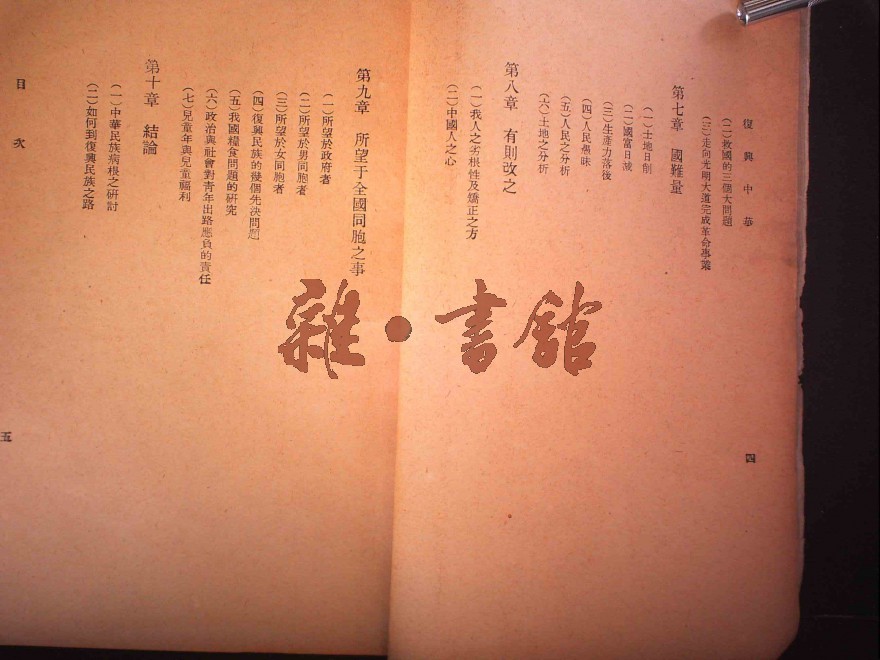 復興中華
(二)救國的三個大問題
(三)走向光明大道完成革命事業
第七章 國難量
(一)土地日削
(二)國富日減
(三)生產力落後
(四)人民愚昧
(五)人民之分析
(六)土地之分析
第八章 有則改之
(一)我人之劣根性及矯正之方
(二)中國人之心
四
第九章 所望于全國同胞之事
(一)所望於政府者
(二)所望於男同胞者
(三)所望於女同胞者
(四)復興民族的幾個先決問題
(五)我國糧食問題的研究
(六)政治與社會對青年出路應負的責任
(七)兒童年與兒童福利
第十章 結論
(一)中華民族病根之研討
(二)如何到復興民族之路
目次
五
雜·書館